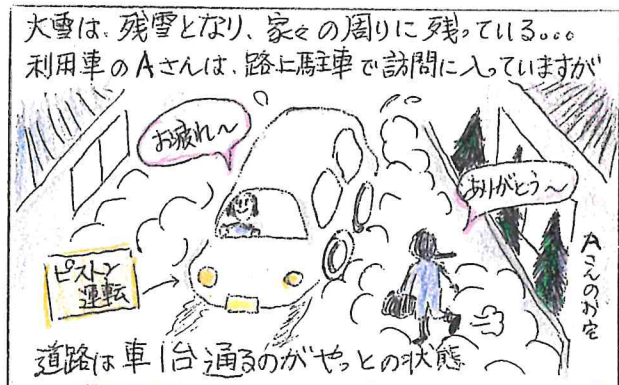 大雪は、残雪となり、家々の周りに残っている。。。
利用車のAさんは、路上駐車で訪問に入っていますが
お疲れ〜
ありがとう〜
ピストン
運転
Aさんのお宅
道路は車1台通るのがやっとの状態